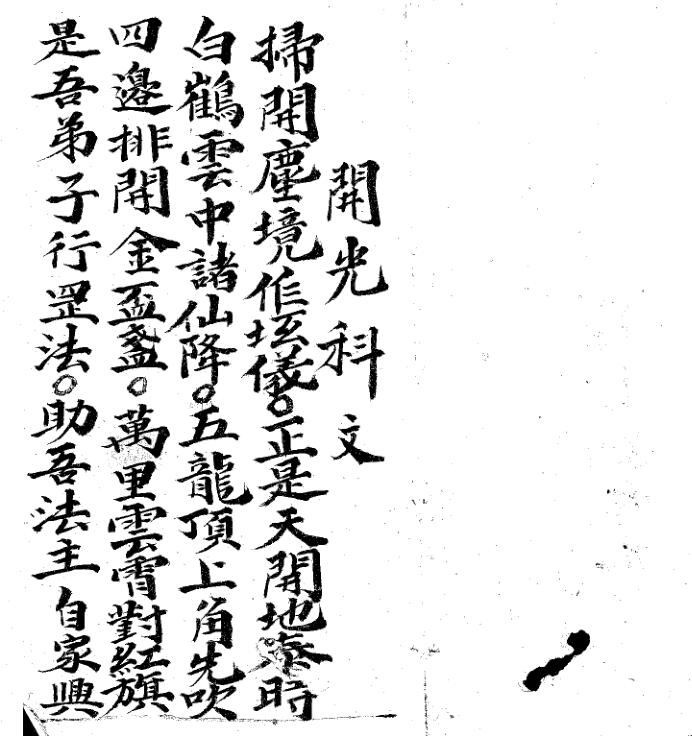 開光科文
掃開塵境作坛儀。正是天開地泰時
白鶴雲中諸仙降。五龍頂上角先吹
四邊排開金盃盞。萬里雲霄對紅旗
是吾弟子行罡法。助吾法主自家興